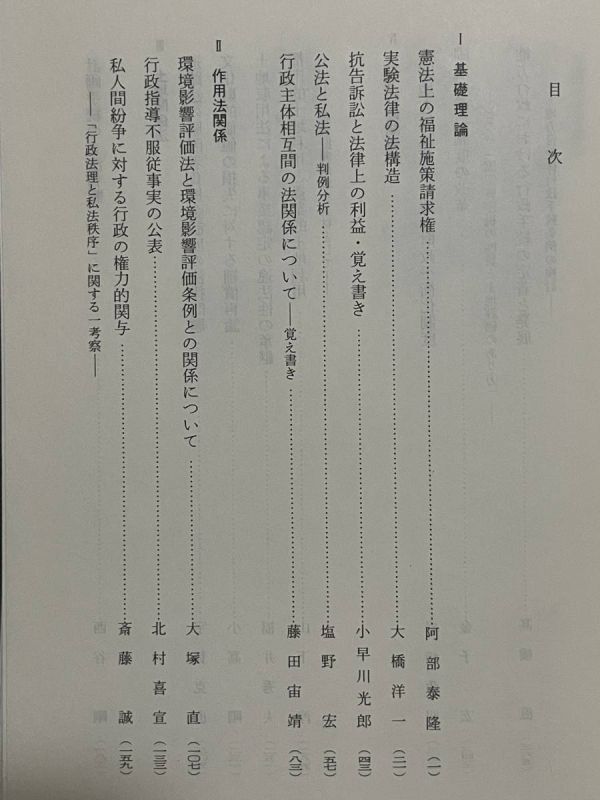 目次
Ⅰ 基礎理論
憲法上の福祉施策請求権……阿部泰隆（一）
実験法律の法構造……大橋洋一（二一）
抗告訴訟と法律上の利益・覚え書き……小早川光郎（四三）
公法と私法――判例分析……塩野宏（五七）
行政主体相互間の法関係について――覚え書き……藤田宙靖（八三）
Ⅱ 作用法関係
環境影響評価法と環境影響評価条例との関係について……大塚直（一〇七）
行政指導不服従事実の公表……北村喜宣（一三三）
私人間紛争に対する行政の権力的関与……斎藤誠（一五九）
――「行政法理と私法秩序」に関する一考察――